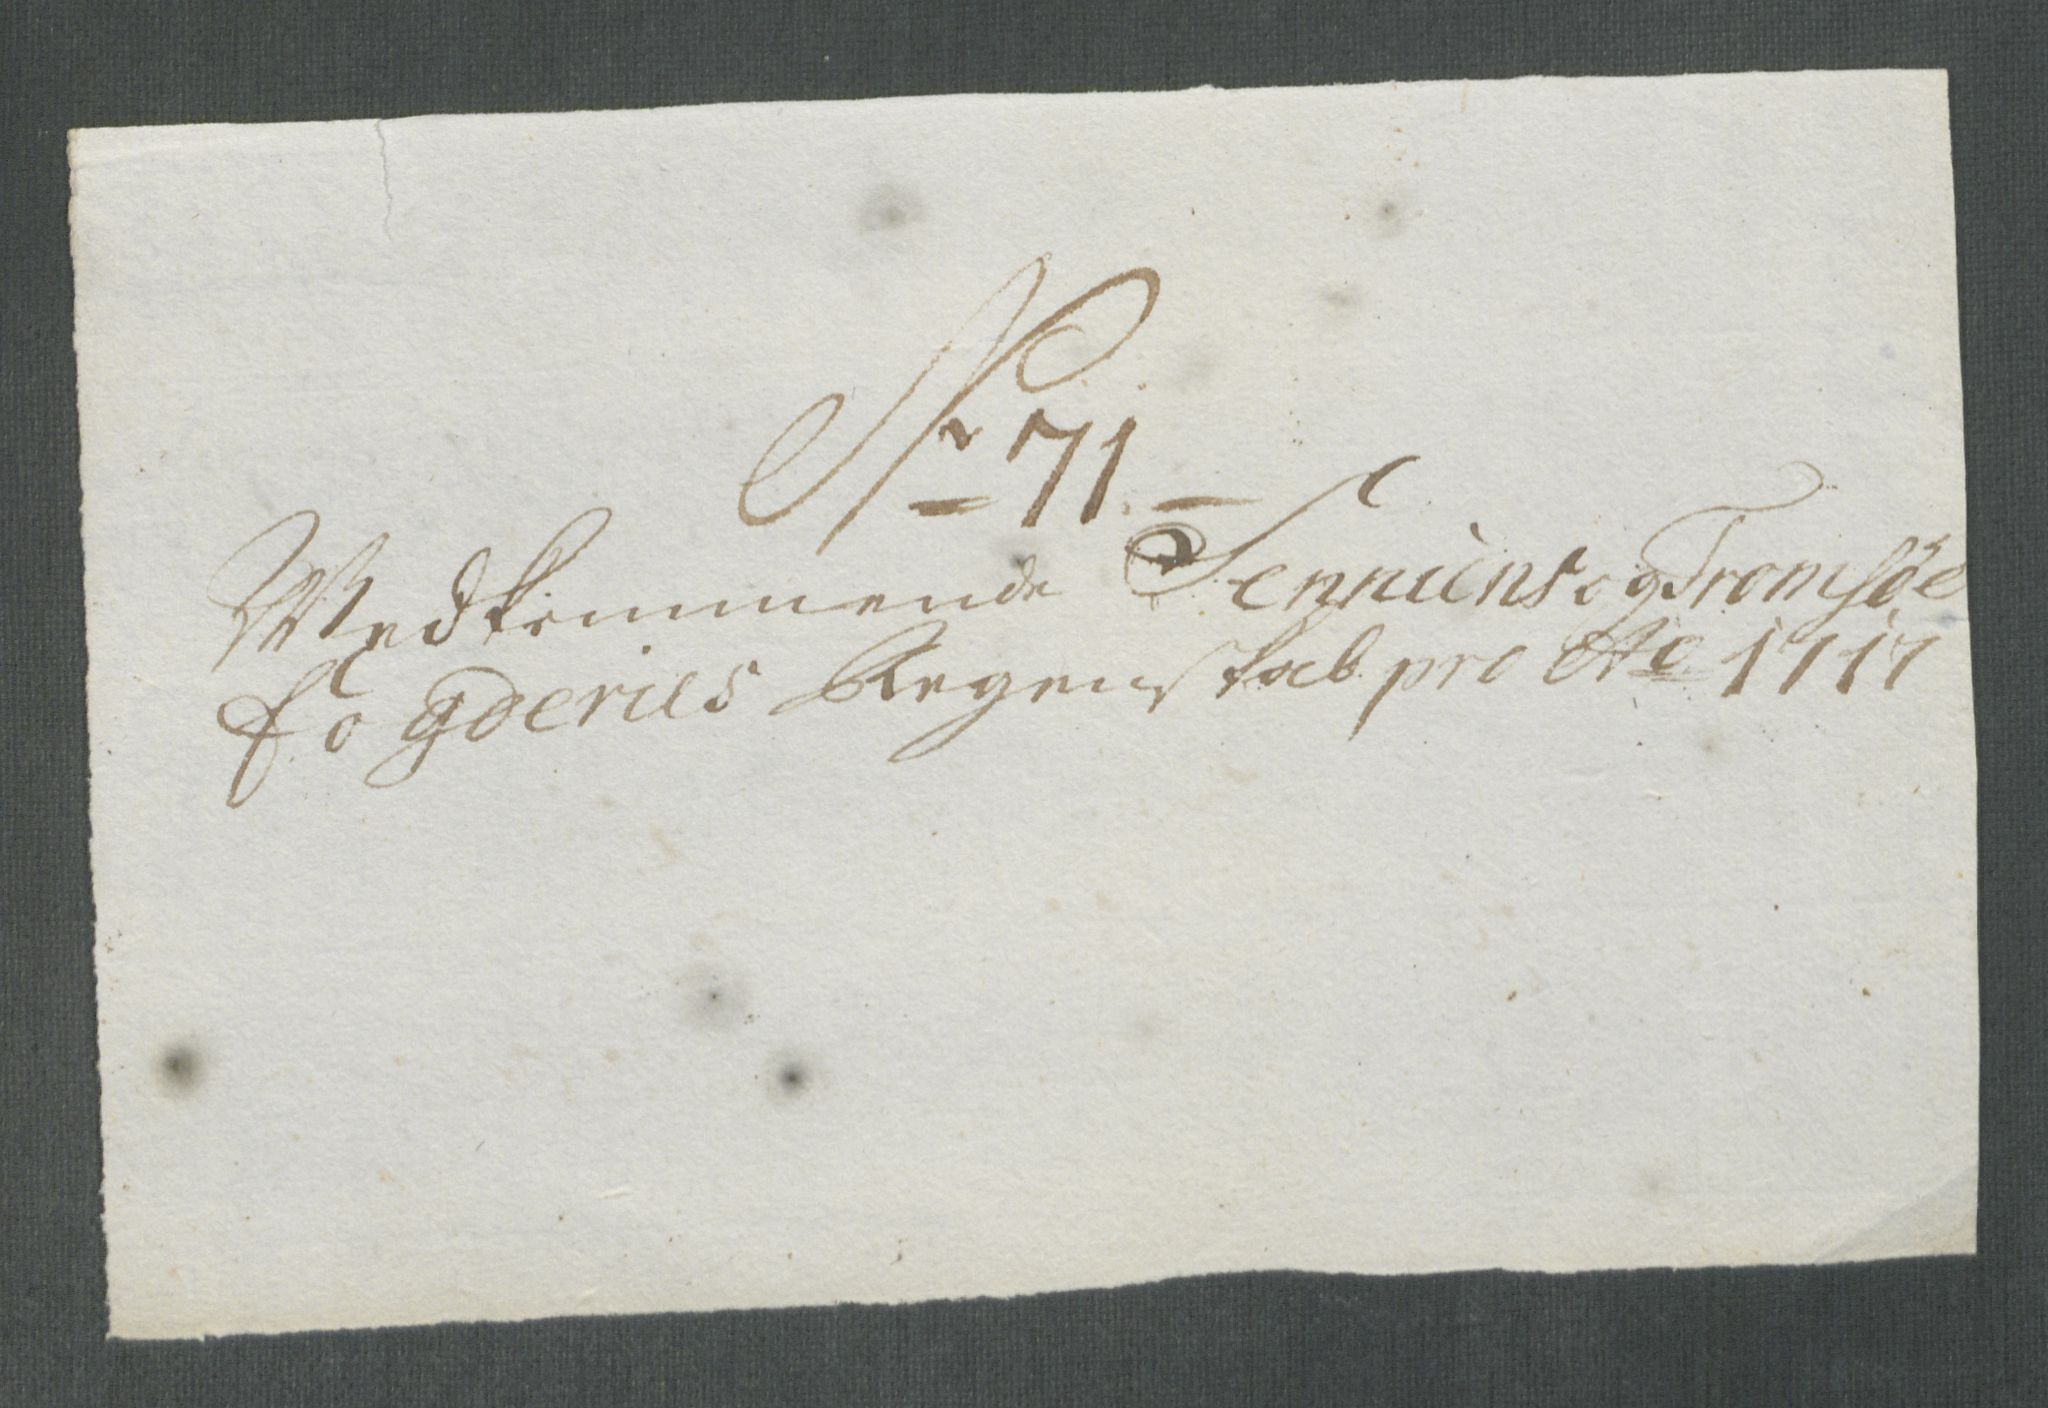 Nr 71.
Vedkommende Senniens og Tromsøe
fogderies Regenskab pro Ao 1717